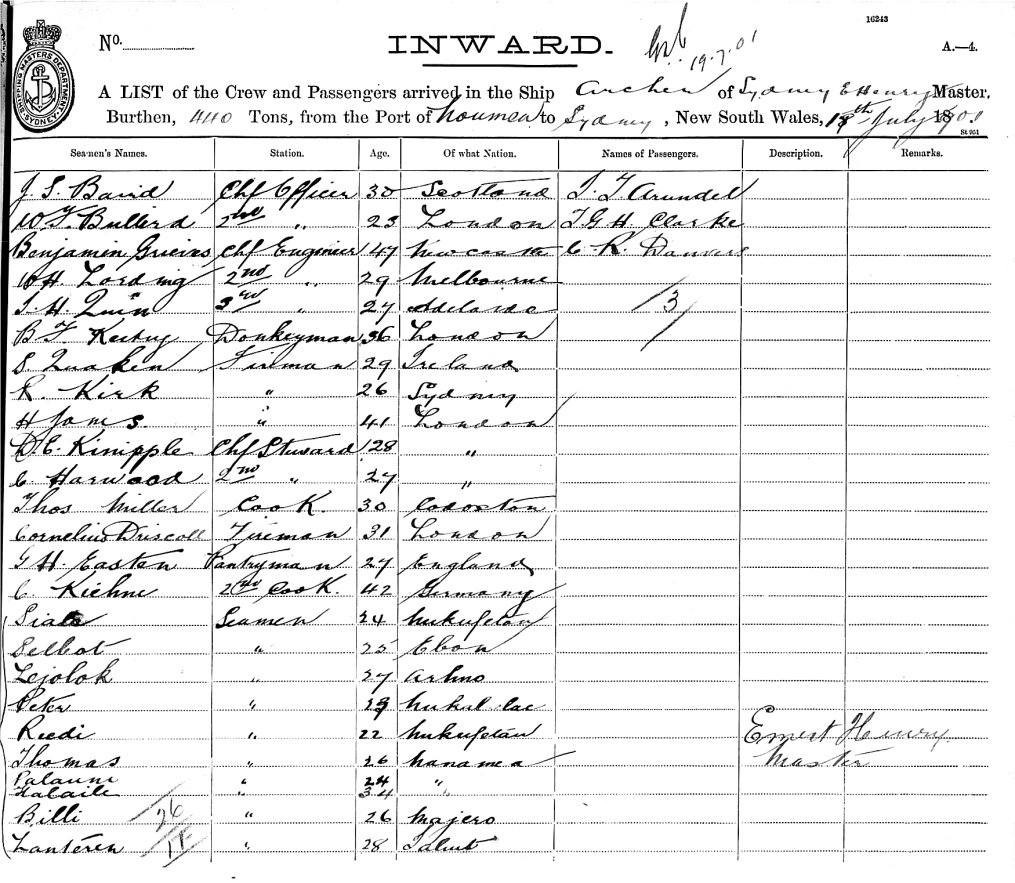 16243
No.
INWARD.
19.7.01
A.—4.
SHIPPING MASTERS DEPARTMENT SYDNEY
A LIST of the Crew and Passengers arrived in the Ship Archer of Sydney E Henry Master,
Burthen, 440 Tons, from the Port of Noumea to Sydney, New South Wales, 18th July 1901
St 951
Seamen's Names. Station. Age. Of what Nation. Names of Passengers. Description. Remarks.
J. S. Baird Chf Officer 30 Scotland J. T. Arundel
W. F. Bullerd 2nd " 23 London T G H. Clarke
Benjamin Grieves Chf Engineer 47 Newcastle C R. Danvers
W H. Lording 2nd " 29 Melbourne
J. H. Quin 3rd " 27 Adelaide 3
B F. Donkeyman 36 London
S. Quaken Fireman 29 Ireland
R. Kirk " 26 Sydney
H James. " 41 London
D. C. Kinipple Chf Steward 28 "
C. Harwood 2nd " 27 "
Thos Miller Cook. 30
Cornelius Driscoll Fireman 31 London
G H. Easten Pantryman 27 England
C. Kiehne 2nd Cook. 42 Germany
Siale Seamen 24 Nukufetau
Selbot " 25 Ebon
Lejolok " 27 Arhno
Peter " 19
Reedi " 22 Nukufetau Ernest Henry.
Thomas " 26 Nanamea Master
Palauni " 24 "
" 34
Billi " 26 Majero
26
Lanteren " 28 Jaluit